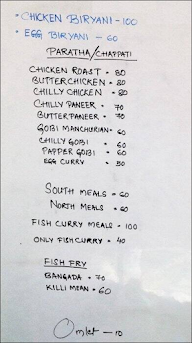 • CHICKEN BIRYANI - 100
• EGG BIRYANI - 60
PARATHA/CHAPPATI
CHICKEN ROAST = 80
BUTTER CHICKEN = 80
CHILLY CHICKEN = 80
CHILLY PANEER = 70
BUTTER PANEER = 70
GOBI MANCHURIAN = 60
CHILLY GOBI = 60
PAPPER GOBI = 60
EGG CURRY = 50
SOUTH MEALS = 60
NORTH MEALS = 60
FISH CURRY MEALS = 100
ONLY FISH CURRY = 40
FISH FRY
BANGADA = 70
KILLI MEAN = 60
Omlet - 10